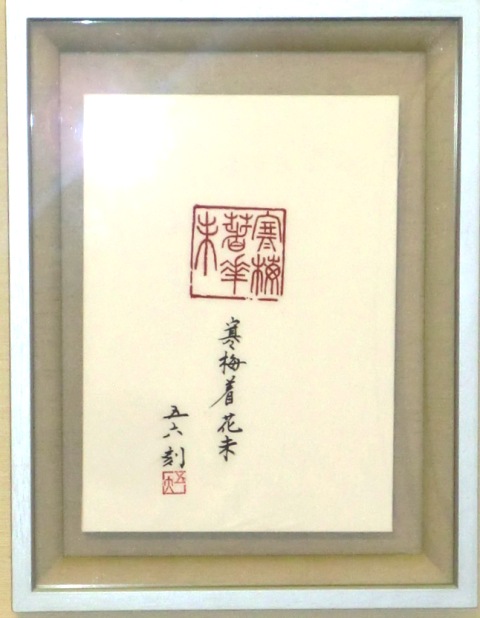 寒梅
著華
未
寒梅着花未
五六刻
五六